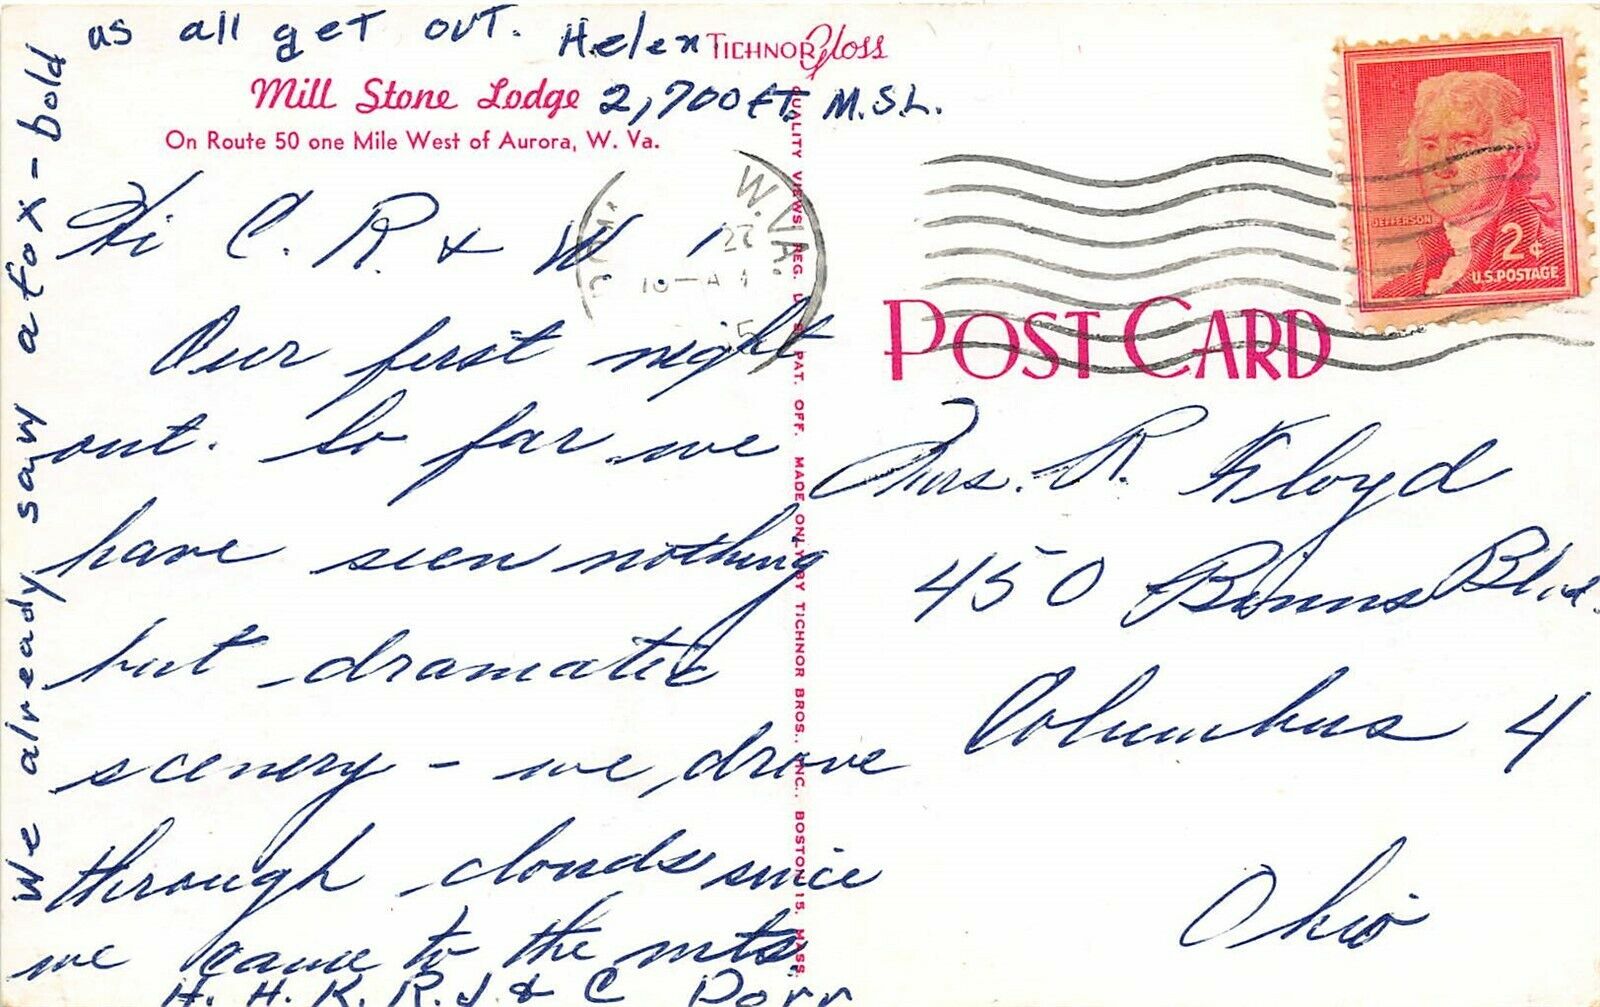 as all get out. Helen
TICHNOR Gloss
Mill Stone Lodge
2,700 Ft. M.S.L.
On Route 50 one Mile West of Aurora, W. Va.
Hi C. R. & W
Our first night
out. So far we
have seen nothing
but dramatic
scenery - we drove
through clouds since
we came to the mts.
H. H. K. R. J. & C Dorr
We already saw a fox - bold
QUALITY VIEWS REG. U. S. PAT. OFF. MADE ONLY BY TICHNOR BROS., INC., BOSTON 15, MASS.
W. VA.
27
JEFFERSON
2¢
U.S. POSTAGE
POST CARD
Mrs. R. Floyd
450 Binns Blvd.
Columbus 4
Ohio